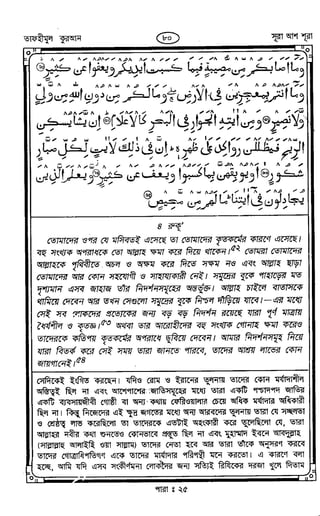 তাফহীমুল কুরআন
৮০
সূরা আশ শূরা
وما اصابكم من مصيبة فبما كسبت ايديكم ويعفوا عن كثير
وما انتم بمعجزين في الارض وما لكم من دون الله من ولي
ولا نصير ومن ايته الجوار في البحر كالاعلام ان يشا يسكن
الريح فيظللن رواكد على ظهره ان في ذلك لايت لكل صبار
شكور او يوبقهن بما كسبوا ويعف عن كثير ويعلم الذين
يجادلون في ايتنا ما لهم من محيص
৪ রুকূ'
তোমাদের ওপর যে মসিবতই এসেছে তা তোমাদের কৃতকর্মের কারণে এসেছে।
বহু সংখ্যক অপরাধকে তো আল্লাহ ক্ষমা করে দিয়ে থাকেন।৫২ তোমরা তোমাদের
আল্লাহকে পৃথিবীতে অচল ও অক্ষম করে দিতে সক্ষম নও এবং আল্লাহ ছাড়া
তোমাদের আর কোন সহযোগী ও সাহায্যকারী নেই। সমুদ্রের বুকে পাহাড়ের মত
দৃশ্যমান এসব জাহাজ তাঁর নিদর্শনসমূহের অন্তর্ভুক্ত। আল্লাহ চাইলে বাতাসকে
থামিয়ে দেবেন আর তখন সেগুলো সমুদ্রের বুকে নিশ্চল দাঁড়িয়ে যাবে।—এর মধ্যে
সেই সব লোকদের প্রত্যেকের জন্য বড় বড় নিদর্শন রয়েছে যারা পূর্ণ মাত্রায়
ধৈর্যশীল ও কৃতজ্ঞ।৫৩ অথবা তার আরোহীদের বহু সংখ্যক গোনাহ ক্ষমা করেও
তাদেরকে কতিপয় কৃতকর্মের অপরাধে ডুবিয়ে দেবেন। আমার নিদর্শনসমূহ নিয়ে
যারা বিতর্ক করে সেই সময় তারা জানতে পারবে, তাদের আশ্রয় লাভের কোন
জায়গানেই।৫৪
সেদিকেই ইংগিত করছেন। যদিও রোম ও ইরানের তুলনায় তাদের কোন মর্যাদাশীল
অস্তিত্বই ছিল না এবং আশেপাশের জাতিসমূহের মধ্যে তারা একটি পশ্চাদপদ জাতির
একটি ব্যবসায়জীবী গোষ্ঠী বা অন্য কথায় ফেরিওয়ালার চেয়ে অধিক মর্যাদার অধিকারী
ছিল না। কিন্তু নিজেদের এই ক্ষুদ্র জগতের মধ্যে অন্য আরবদের তুলনায় তারা যে সচ্ছলতা
ও শ্রেষ্ঠত্ব লাভ করেছিলো তা তাদেরকে এতটাই অহংকারী করে তুলেছিলো যে, তারা
আল্লাহর নবীর কথা শুনতেও কোনভাবে প্রস্তুত ছিল না এবং মুহাম্মাদ ইবনে আবদুল্লাহ
(সাল্লাল্লাহু আলাইহি ওয়া সাল্লাম) তাদের নেতা হবে আর তারা তাঁকে অনুসরণ করবে
তাদের গোত্রাধিপতিগণ একে তাদের মর্যাদার পরিপন্থী মনে করতো। এ কারণে বলা
হচ্ছে, আমি যদি এসব সংকীর্ণমনা লোকদের জন্য সত্যিই রিযিকের দরজা খুলে দিতাম
পারা : ২৫